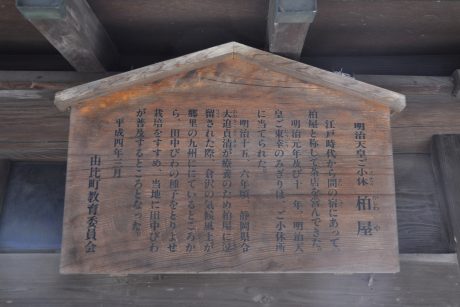 明治天皇ご小休 柏屋
かしわ や
江戸時代から間の宿にあって、
柏屋と称して茶店を営んできた。
明治元年及び十一年、明治天
皇ご東幸のみぎりは、ご小休所
に当てられた。
明治十五、六年頃、静岡県令
大迫貞清が療養のため柏屋に逗
留された際、倉沢の気候風土が
郷里の九州ににているところか
ら、田中びわの種子をとりよせ
栽培をすすめ、当地に田中びわ
が普及するところとなった。
平成四年三月
由比町教育委員会